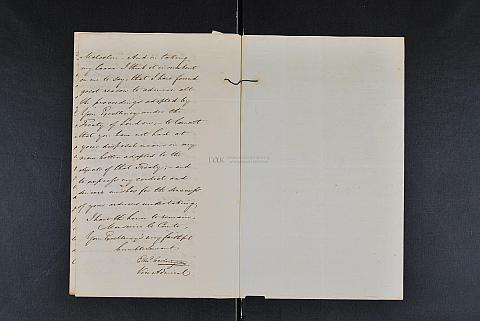 Malcolm. And in taking
my leave I think it incumbent
on me to say, that I have found
great reason to admire all
the proceedings adopted by
Your Excellency under the
Treaty of London; – to lament
that you have not had at
your disposal means in any
way better adapted to the
objects of that Treaty; – and
to express my cordial and
sincere wishes for the success
of your arduous undertaking;
I have the honor to remain,
Monsieur le Comte,
Your Excellency's very faithful
humble servant
Edwd Codrington
Vice Admiral